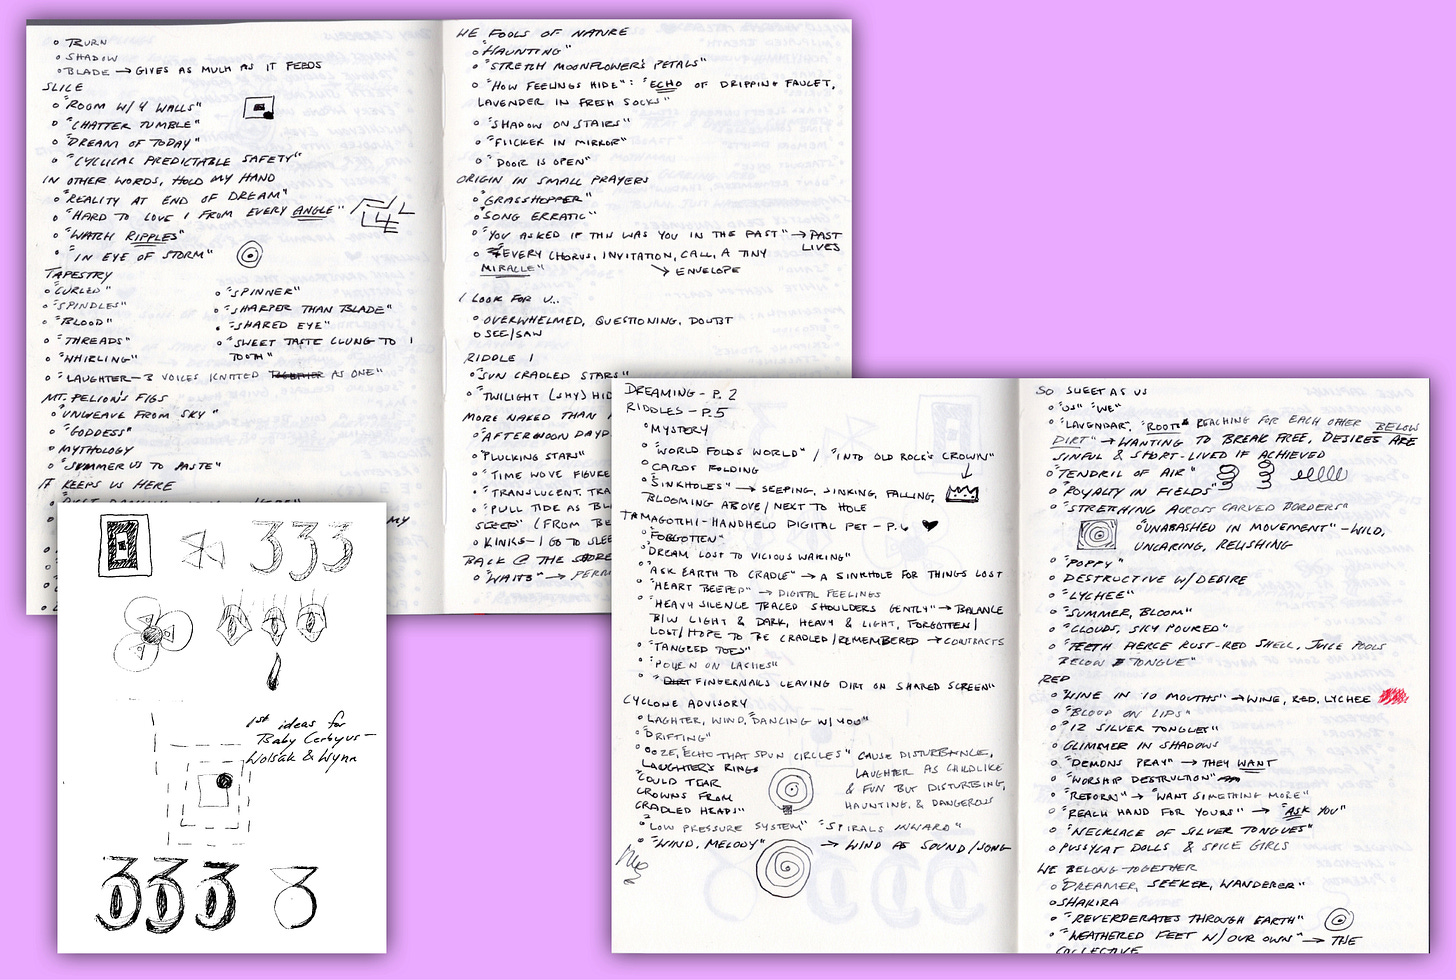 ° BURN
° SHADOW
° BLADE → GIVES AS MUCH AS IT FEEDS
SLICE
° "ROOM W/ 4 WALLS"
° "CHATTER TUMBLE"
° "DREAM OF TODAY"
° "CYCLICAL PREDICTABLE SAFETY"
IN OTHER WORDS, HOLD MY HAND
° "REALITY AT END OF DREAM"
° "HARD TO LOVE 1 FROM EVERY ANGLE"
° "WATCH RIPPLES"
° "IN EYE OF STORM"
TAPESTRY
° "CURLED"
° "SPINDLES"
° "BLOOD"
° "THREADS"
° "WHIRLING"
° "SPINNER"
° "SHARPER THAN BLADE"
° "SHARED EYE"
° "SWEET TASTE CLUNG TO 1
TOOTH"
° "LAUGHTER—3 VOICES KNITTED TOGETHER AS ONE"
MT. PELION'S FIGS
° "UNWEAVE FROM SKY"
° "GODDESS"
° MYTHOLOGY
° "SUMMER US TO PASTE"
IT KEEPS US HERE
MY
WE FOOLS OF NATURE
° "HAUNTING"
° "STRETCH MOONFLOWER'S PETALS"
° "HOW FEELINGS HIDE": "ECHO OF DRIPPING FAUCET,
LAVENDER IN FRESH SOCKS"
° "SHADOW ON STAIRS"
° "FLICKER IN MIRROR"
° "DOOR IS OPEN"
ORIGIN IN SMALL PRAYERS
° "GRASSHOPPER"
° "SONG ERRATIC"
° "YOU ASKED IF THIS WAS YOU IN THE PAST" → PAST
LIVES
° "EVERY CHORUS, INVITATION, CALL, A TINY
MIRACLE" → ENVELOPE
I LOOK FOR U...
° OVERWHELMED, QUESTIONING, DOUBT
° SEE/SAW
RIDDLE 1
° "SUN CRADLED STARS"
° "TWILIGHT (SHY) HID
MORE NAKED THAN
° "AFTERNOON DAYD
° "PLUCKING STARS"
° "TIME WOVE FIGURE
° "TRANSLUCENT, TRA
° "PULL TIDE AS BL
SLEEP" (FROM BE
° KINKS—I GO TO SLEE
BACK @ THE
° "WAITS" → FERRI
DREAMING - P. 2
RIDDLES - P. 5
° MYSTERY
° "WORLD FOLDS WORLD" / "INTO OLD ROCK'S CROWN"
° CARDS FOLDING
° "SINKHOLES" → SEEPING, SINKING, FALLING,
BLOOMING ABOVE/NEXT TO HOLE
TAMAGOTCHI - HANDHELD DIGITAL PET - P. 6
° "FORGOTTEN"
° "DREAM LOST TO VICIOUS WAKING"
° "ASK EARTH TO CRADLE" → A SINKHOLE FOR THINGS LOST
° "HEART BEEPED" → DIGITAL FEELINGS
° "HEAVY SILENCE TRACED SHOULDERS GENTLY" → BALANCE
B/W LIGHT & DARK, HEAVY & LIGHT, FORGOTTEN/
LOST/HOPE TO BE CRADLED/REMEMBERED → CONTRACTS
° "TANGLED TOES"
° "POLLEN ON LASHES"
° "DIRT FINGERNAILS LEAVING DIRT ON SHARED SCREEN"
CYCLONE ADVISORY
° LAGHTER, WIND, "DANCING W/ YOU"
° "DRIFTING"
° "OOZE, ECHO THAT SPUN CIRCLES"
LAUGHTER'S RINGS
"COULD TEAR
CROWNS FROM
CRADLED HEADS"
CAUSE DISTURBANCE,
LAUGHTER AS CHILDLIKE
& FUN BUT DISTURBING,
HAUNTING, & DANGEROUS
° "LOW PRESSURE SYSTEM" "SPIRALS INWARD"
° "WIND, MELODY" → WIND AS SOUND/SONG
SO SWEET AS US
° "US" "WE"
° "LAVENDAR, "ROOTS REACHING FOR EACH OTHER BELOW
DIRT" → WANTING TO BREAK FREE, DESIRES ARE
SINFUL & SHORT-LIVED IF ACHIEVED
° "TENDRIL OF AIR"
° "ROYALTY IN FIELDS"
° "STRETCHING ACROSS CARVED BORDERS"
° "UNABASHED IN MOVEMENT" - WILD,
UNCARING, RELISHING
° "POPPY"
° DESTRUCTIVE W/ DESIRE
° "LYCHEE"
° "SUMMER, BLOOM"
° "CLOUDS, SKY POURED"
° "TEETH PIERCE RUST-RED SHELL, JUICE POOLS
BELOW TONGUE"
RED
° "WINE IN 10 MOUTHS" → WINE, RED, LYCHEE
° "BLOOD ON LIPS"
° "12 SILVER TONGUES"
° GLIMMER IN SHADOWS
° "DEMONS PRAY" → THEY WANT
° "WORSHIP DESTRUCTION"
° "REBORN" → "WANT SOMETHING MORE"
° "REACH HAND FOR YOURS" → "ASK YOU"
° "NECKLACE OF SILVER TONGUES"
° PUSSYCAT DOLLS & SPICE GIRLS
WE BELONG TOGETHER
° "DREAMER, SEEKER, WANDERER"
° SHAKIRA
° "REVERBERATES THROUGH EARTH"
° "WEATHERED FEET W/ OUR OWN" → THE
COLLECTIVE
333
1st ideas for
Baby Cerberus—
Wolsak & Wynn
333 3